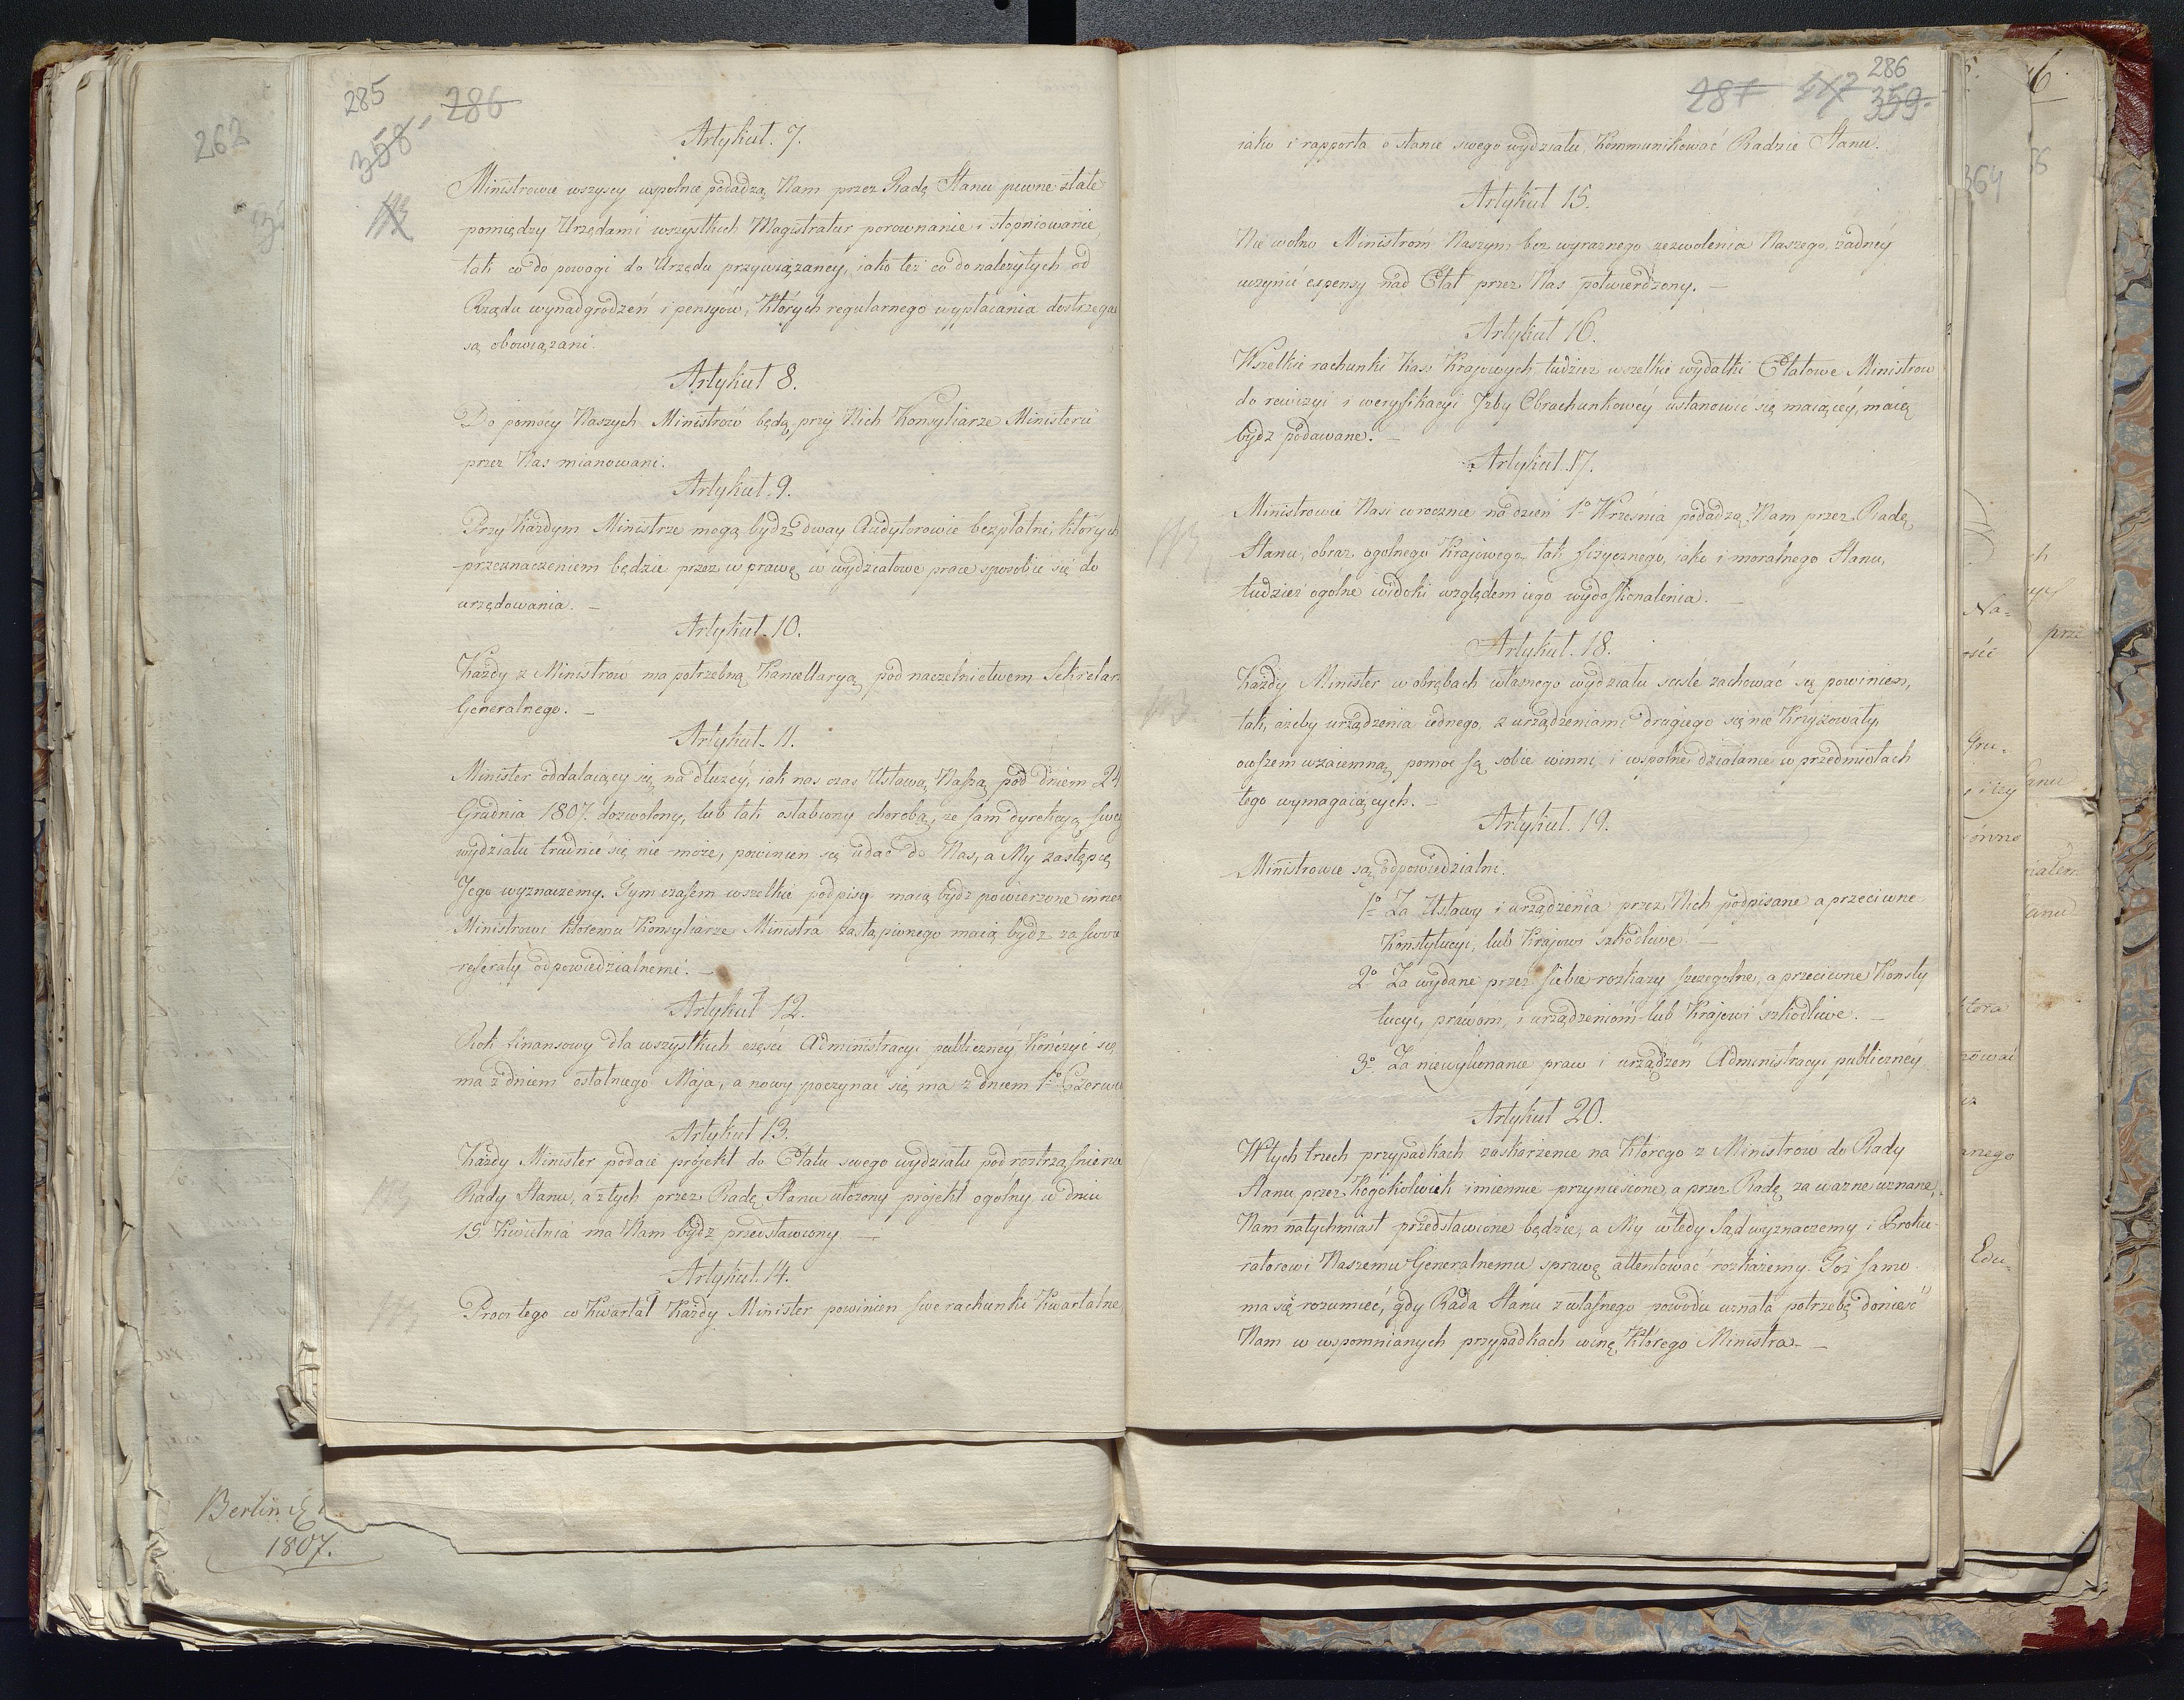 262
Berlin
1807.
285
286
358
113
Artykuł. 7.
Ministrowie wszyscy wspolnie podadzą Nam przez Radę Stanu pewne stałe
pomiędzy Urzędami wszystkich Magistratur porownanie i stopniowanie,
tak co do powogi do Urzędu przywiązaney, iako też co do należytych od
Rządu wynadgrodzeń i pensyów, których regularnego wypłacania dostrzegać
są obowiązani.
Artykuł 8.
Do pomocy Naszych Ministrów będą przy Nich Konsyliarze Ministerii
przez Nas mianowani.
Artykuł. 9.
Przy każdym Ministrze mogą bydź dway Audytorowie bezpłatni, których
przeznaczeniem będzie przez wprawę w wydziałowe prace sposobić się do
urzędowania. —
Artykuł. 10.
Każdy z Ministrow ma potrzebną Kancellaryą pod naczelnictwem Sekretar
Generalnego. —
Artykuł. 11.
Minister oddalaiący się na dłużéy, iak nas czas Ustawą Naszą pod dniem 24
Grudnia 1807. dozwolony, lub tak osłabiony chorobą, że sam dyrekcyą swe
wydziału trudnić się nie może, powinien się udać do Nas, a My zastępcę
Jego wyznaczemy. Tym czasem wszelkie podpisy maią bydź powierzone inne
Ministrowi któremu Konsyliarze Ministra zastąpionego maią bydź za swoie
referaty odpowiedzialnemi. —
Artykuł 12.
Rok finansowy dla wszystkich części Administracyi publiczney kończyć się
ma z dniem ostatniego Maja, a nowy poczynać się ma z dniem 1º Czerwca
Artykuł 13.
Każdy Minister podaie projekt do Etatu swego wydziału pod roztrząśnienie
Rady Stanu, a z tych przez Radę Stanu ułożony projekt ogolny w dniu
15 Kwietnia ma Nam bydź przedstawiony —
113
Artykuł. 14.
Procz tego co Kwartał Każdy Minister powinien swe rachunki Kwartalne,
113
286
287
359
iako i rapporta o stanie swego wydziału, Kommunikować Radzie Stanu.
Artykuł 15.
Nie wolno Ministróm Naszym bez wyraznego zezwolenia Naszego, żadney
uczynić expensy nad Etat przez Nas potwierdzony. —
Artykuł 16.
Wszelkie rachunki Kass Krajowych tudzież wszelkie wydatki Etatowe Ministrow
do rewizyi i weryfikacyi Jzby Obrachunkowéy ustanowić się maiącéy, maią
bydź podawane. —
Artykuł. 17.
Ministrowie Nasi corocznie na dzień 1º Września podadzą Nam przez Radę
Stanu, obraz ogolnego Krajowego, tak fizycznego, iako i moralnego Stanu,
tudzież ogólne widoki względem iego wydoskonalenia. —
113
Artykuł. 18.
Każdy Minister w obrębach własnego wydziału sciśle zachować się powinien,
tak, ażeby urządzenia iednego, z urządzeniami drugiego się nie krzyżowały,
owszem wzaiemną pomoc są sobie winni, i wspolne działanie w przedmiotach
tego wymagaiących. —
113
Artykuł. 19.
Ministrowie są odpowiedzialni.
1º Za Ustawy i urządzenia przez Nich podpisane a przeciwne
Konstytucyi, lub Krajowi szkodliwe —
2º Za wydane przez siebie rozkazy szczegolne, a przeciwne Konsty
tucyi, prawom, i urządzeniom lub Krajowi szkodliwe. —
3º. Za niewykonanie praw i urządzeń Administracyi publicznéy
Artykuł 20.
W tych trzech przypadkach zaskarżenie na Którego z Ministrow do Rady
Stanu przez Kogokolwiek imiennie przyniesione, a przez Radę za ważne uznane,
Nam natychmiast przedstawione będzie, a My wtedy Sąd wyznaczemy i Proku-
ratorowi Naszemu Generalnemu sprawę attentować rozkażemy. Toż samo
ma się rozumieć, gdy Rada Stanu z własnego powodu uznała potrzebę donieść
Nam w wspomnianych przypadkach winę, Którego Ministra. —
364
Na=
Gru=
Edu=